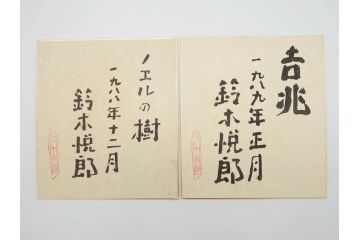 吉兆
一九八九年正月
鈴木悦郎
ノエルの樹
一九八八年十二月
鈴木悦郎